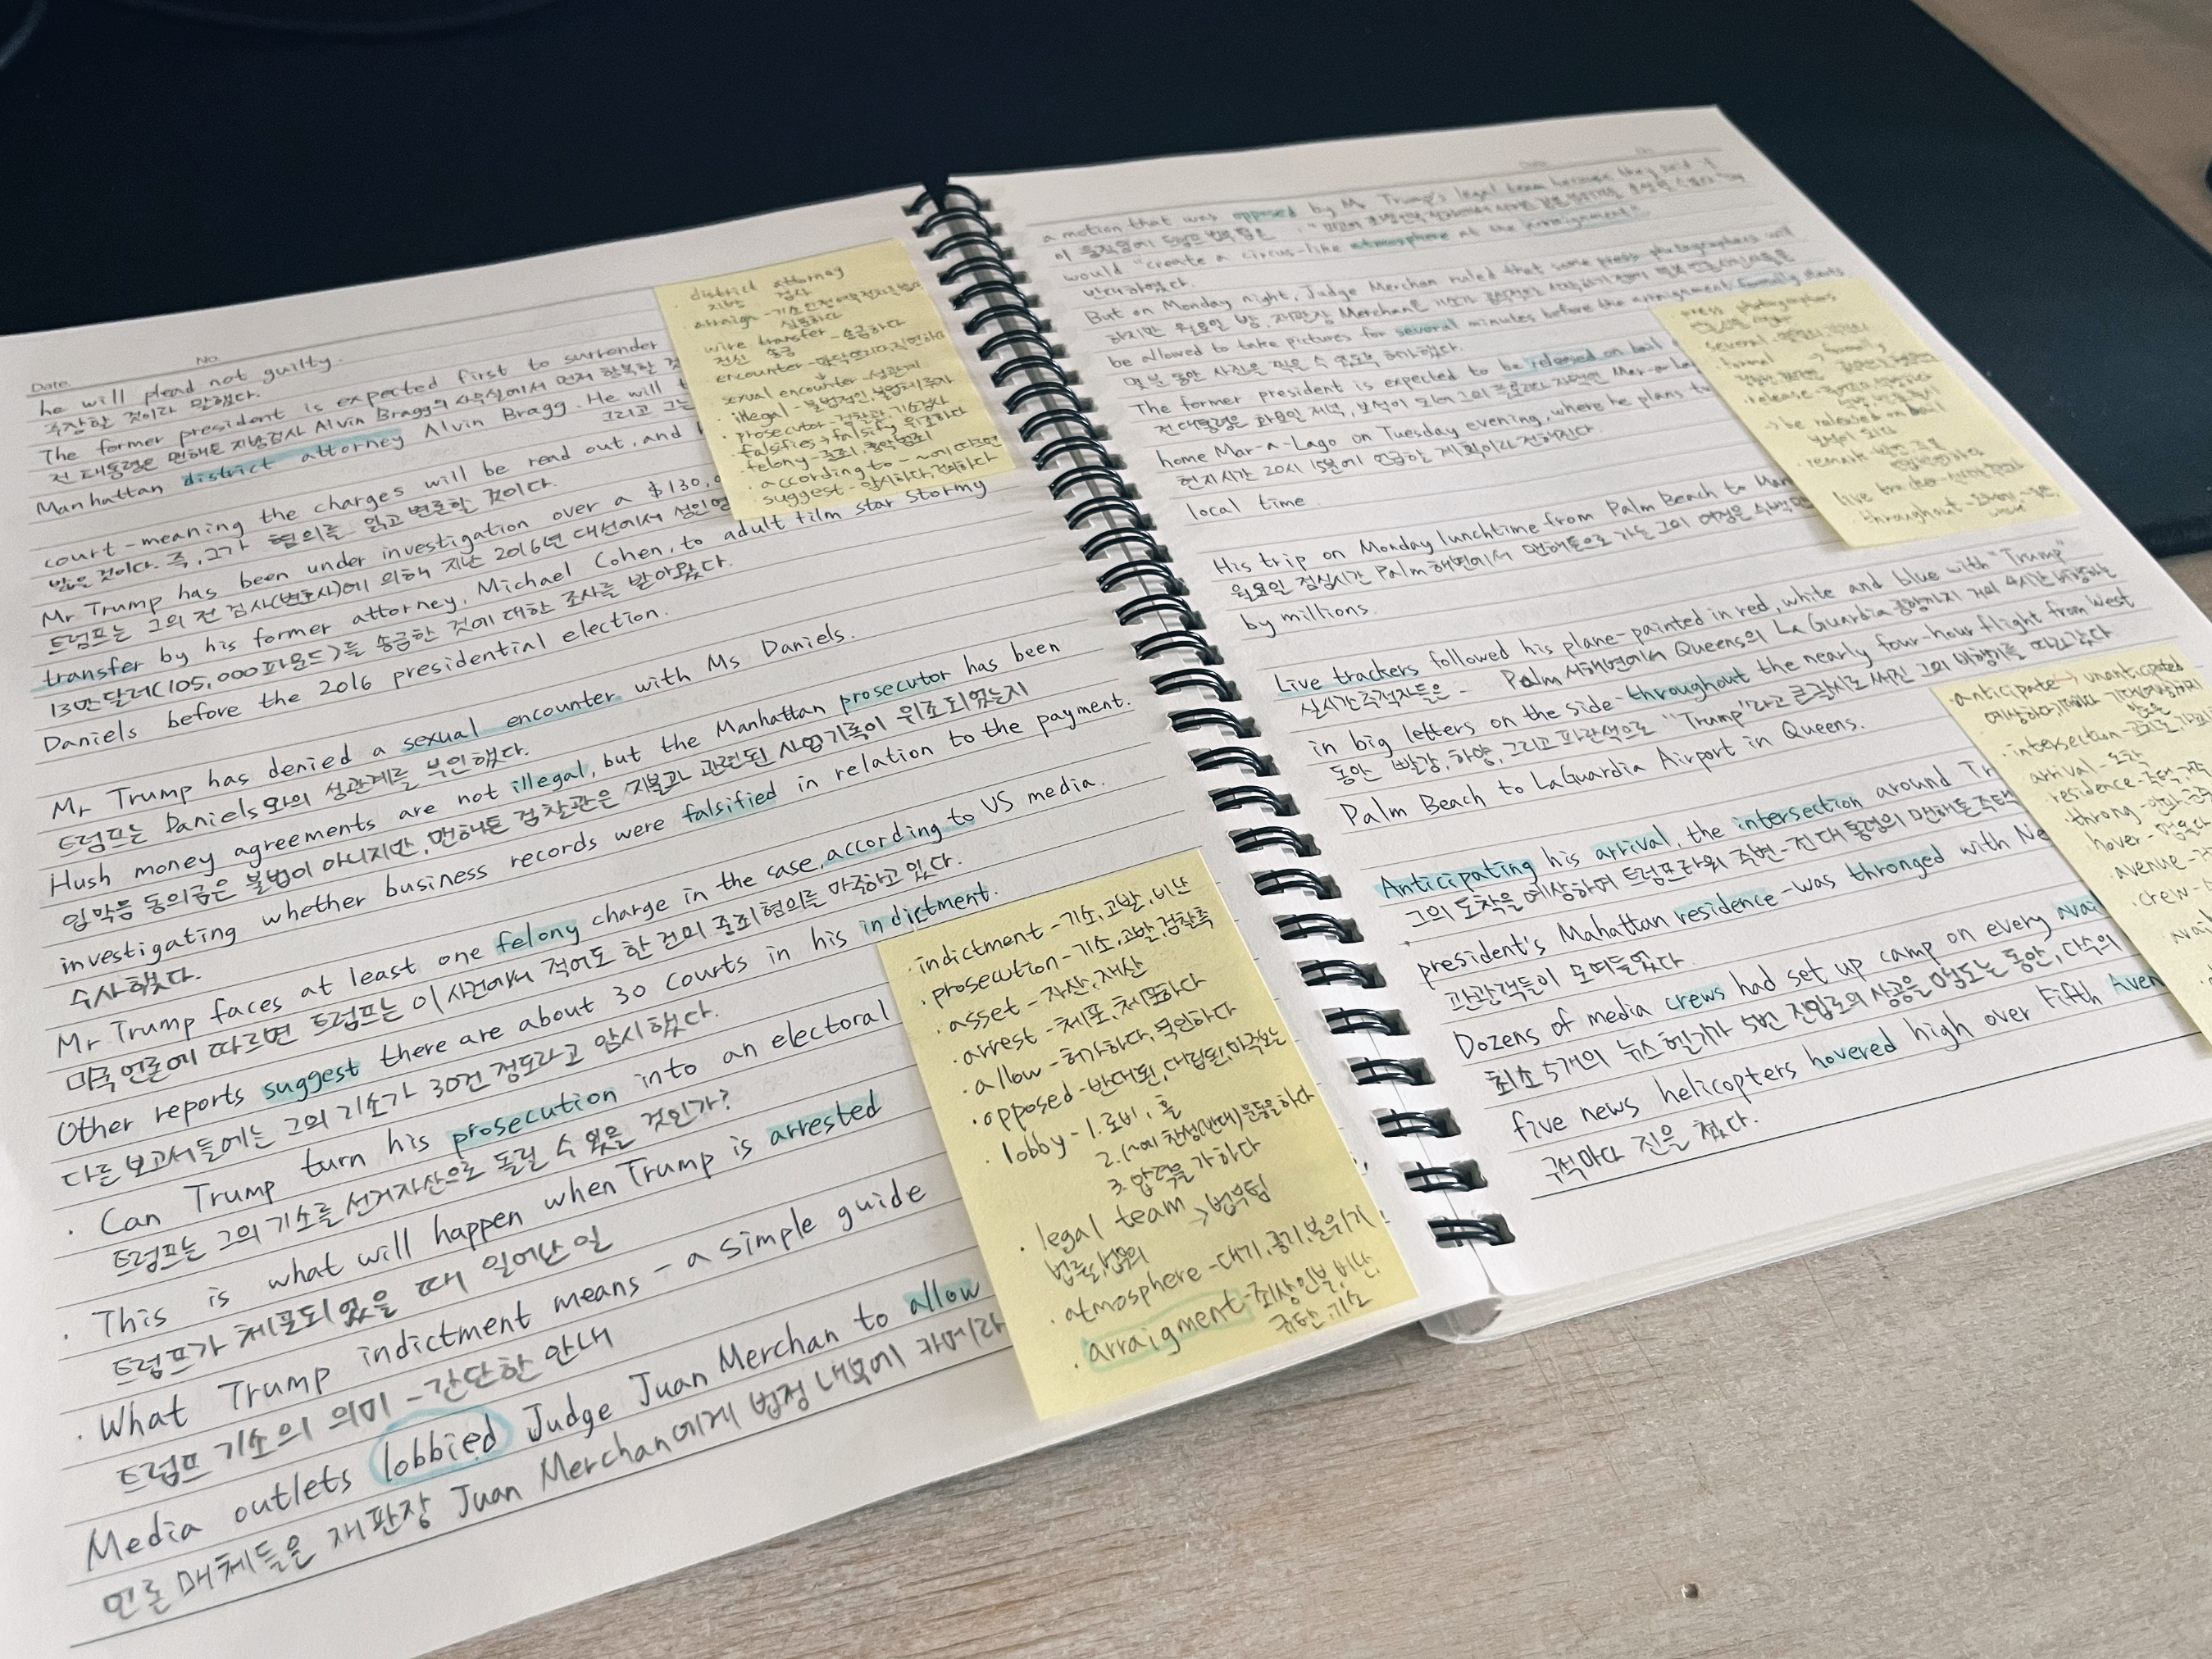 Date. No.
he will plead not guilty.
주장할 것이라 말했다.
The former president is expected first to surrender
전 대통령은 맨해튼 지방검사 Alvin Bragg의 사무실에서 먼저 항복할 것
Manhattan district attorney Alvin Bragg. He will
그리고 그는
court-meaning the charges will be read out, and
받을 것이다. 즉, 그가 혐의를 읽고 변론할 것이다.
Mr Trump has been under investigation over a $130,
트럼프는 그의 전 검사(변호사)에 의해 지난 2016년 대선에서 성인영
transfer by his former attorney, Michael Cohen, to adult film star Stormy
13만달러(105,000파운드)를 송금한 것에 대한 조사를 받아왔다.
Daniels before the 2016 presidential election.
Mr Trump has denied a sexual encounter with Ms Daniels.
트럼프는 Daniels와의 성관계를 부인했다.
Hush money agreements are not illegal, but the Manhattan prosecutor has been
입막음 동의금은 불법이 아니지만, 맨해튼 검찰관은 지불과 관련된 사업기록이 위조되었는지
investigating whether business records were falsified in relation to the payment.
수사했다.
Mr Trump faces at least one felony charge in the case, according to US media.
미국 언론에 따르면 트럼프는 이 사건에서 적어도 한 건의 중죄혐의를 마주하고 있다.
Other reports suggest there are about 30 courts in his indictment.
다른 보고서들에는 그의 기소가 30건 정도라고 암시했다.
· Can Trump turn his prosecution into an electoral
트럼프는 그의 기소를 선거자산으로 돌릴 수 있을 것인가?
· This is what will happen when Trump is arrested
트럼프가 체포되었을 때 일어난 일
· What Trump indictment means - a simple guide
트럼프 기소의 의미 - 간단한 안내
Media outlets lobbied Judge Juan Merchan to allow
언론매체들은 재판장 Juan Merchan에게 법정 내부에 카메라
district attorney
지방 검사
· arraign - 기소
wire transfer - 송금하다
전신 송금
encounter -
sexual encounter - 성관계
· illegal - 불법적인, 불법체류자
· prosecutor - 검찰관, 기소검사
falsifies → falsify 위조하다
felony - 중죄, 흉악범죄
· according to - ~에 따르면
· suggest - 암시하다, 건의하다
· indictment - 기소, 고발, 비난
· prosecution - 기소, 고발, 검찰측
· asset - 자산, 재산
· arrest - 체포, 체포하다
· allow - 허가하다, 묵인하다
· opposed - 반대된, 대립된, 마주보는
· lobby - 1. 로비, 홀
2. (~에 찬성(반대)운동을 하다
3. 압력을 가하다
· legal team → 법무팀
법률, 법무의
· atmosphere - 대기, 공기, 분위기
· arraigment - 죄상인부, 비난,
규탄, 기소
a motion that was opposed by Mr Trump's legal team because they said it
이 움직임에 트럼프 법무팀은
would "create a circus-like atmosphere at the arraignment".
반대하였다.
But on Monday night, Judge Merchan ruled that some press photographers will
하지만 월요일 밤, 재판장 Merchan은
be allowed to take pictures for several minutes before the arraignment formally starts
몇 분 동안 사진을 찍을 수 있도록 허가했다.
The former president is expected to be released on bail
전 대통령은 화요일 저녁, 보석이 되어 그의 플로리다 자택인 Mar-a-La
home Mar-a-Lago on Tuesday evening, where he plans to
현지시간 20시 15분에 언급할 계획이라 전해진다.
local time.
His trip on Monday lunchtime from Palm Beach to Man
월요일 점심시간 Palm 해변에서 맨해튼으로 가는 그의 여정은 수백만
by millions.
Live trackers followed his plane - painted in red, white and blue with "Trump"
실시간추적자들은 - Palm 서해변에서 Queens의 La Guardia 공항까지 거의 4시간 비행하는
in big letters on the side - throughout the nearly four-hour flight from West
동안 빨강, 하양, 그리고 파란색으로 "Trump"라고 큰 글씨로 써진 그의 비행기를 따라갔다.
Palm Beach to LaGuardia Airport in Queens.
Anticipating his arrival, the intersection around Tr
그의 도착을 예상하며 트럼프타워 주변 - 전 대통령의 맨해튼 주택
president's Mahattan residence - was thronged with Ne
관광객들이 모여들었다.
Dozens of media crews had set up camp on every avai
최소 5개의 뉴스 헬기가 5번 진입로의 상공을 맴도는 동안, 다수의
five news helicopters hovered high over Fifth Aven
구석마다 진을 쳤다.
press photographers
· several
· formal → formally
· release
→ be released on bail
보석이 되다
live tracker
throughout
· anticipate → unanticipated
· intersection - 교차로
arrival - 도착
residence - 주택, 거주
throng
hover - 맴돌다
· avenue
· crew